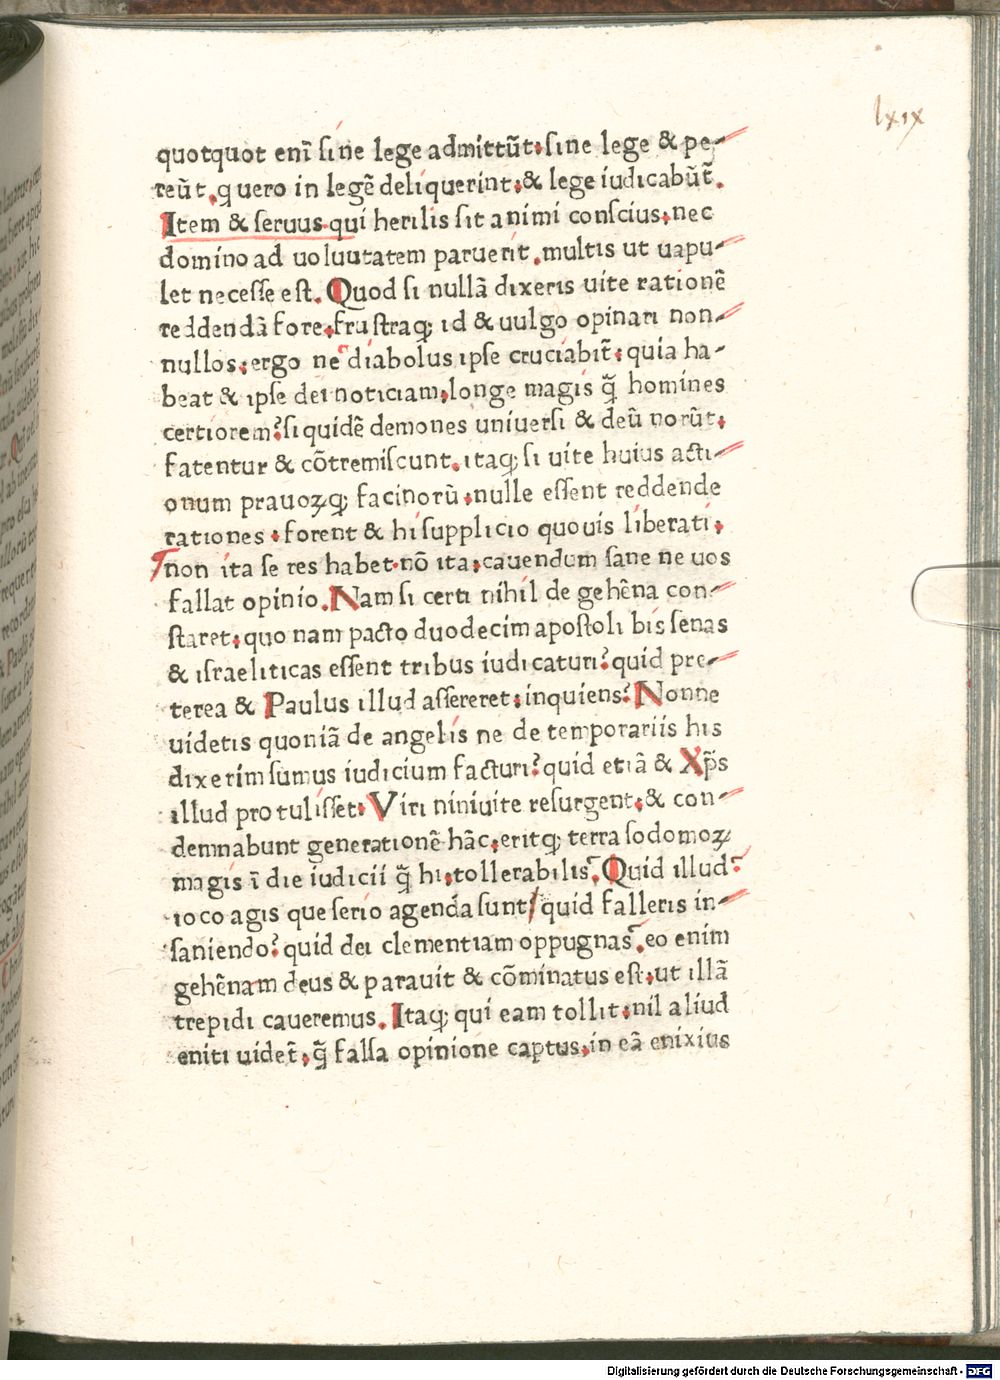 lxix
quotquot enī sine lege admittūt: sine lege & pe-
reūt. quero in legē deliquerint: & lege iudicabūt̄.
Item & seruus qui herilis sit animi conscius: nec
domino ad uoluutatem paruerit. multis ut uapu-
let necesse est. Quod si nullā dixeris uite rationē
reddendā fore: frustraq; id & uulgo opinari non-
nullos: ergo ne diabolus ipse cruciabit̄: quia ha-
beat & ipse dei noticiam: longe magis q̄ homines
certiorem? siquidē demones uniuersi & deū norūt:
fatentur & cōtremiscunt. itaq; si uite huius acti-
onum prauoꝝq; facinorū: nulle essent reddende
rationes: forent & hi supplicio quouis liberati:
non ita se res habet. nō ita: cauendum sane ne uos
fallat opinio. Nam si certi nihil de gehēna con-
staret: quo nam pacto duodecim apostoli bis senas
& israeliticas essent tribus iudicaturi? quid pre-
terea & Paulus illud assereret: inquiens? Nonne
uidetis quoniā de angelis ne de temporariis his
dixerim sumus iudicium facturi? quid etiā & Xp̄s
illud protulisset: Viri niniuite resurgent: & con-
demnabunt generationē hāc: eritq; terra sodomoꝝ
magis ī die iudicii q̄ hi: tollerabilis. Quid illud
ioco agis que serio agenda sunt/ quid falleris in-
saniendo? quid dei clementiam oppugnas. eo enim
gehēnam deus & parauit & cōminatus est: ut illā
trepidi caueremus. Itaq; qui eam tollit: nil aliud
eniti uidet̄: q̄ falsa opinione captus: in eā enixius
Digitalisierung gefördert durch die Deutsche Forschungsgemeinschaft - DFG